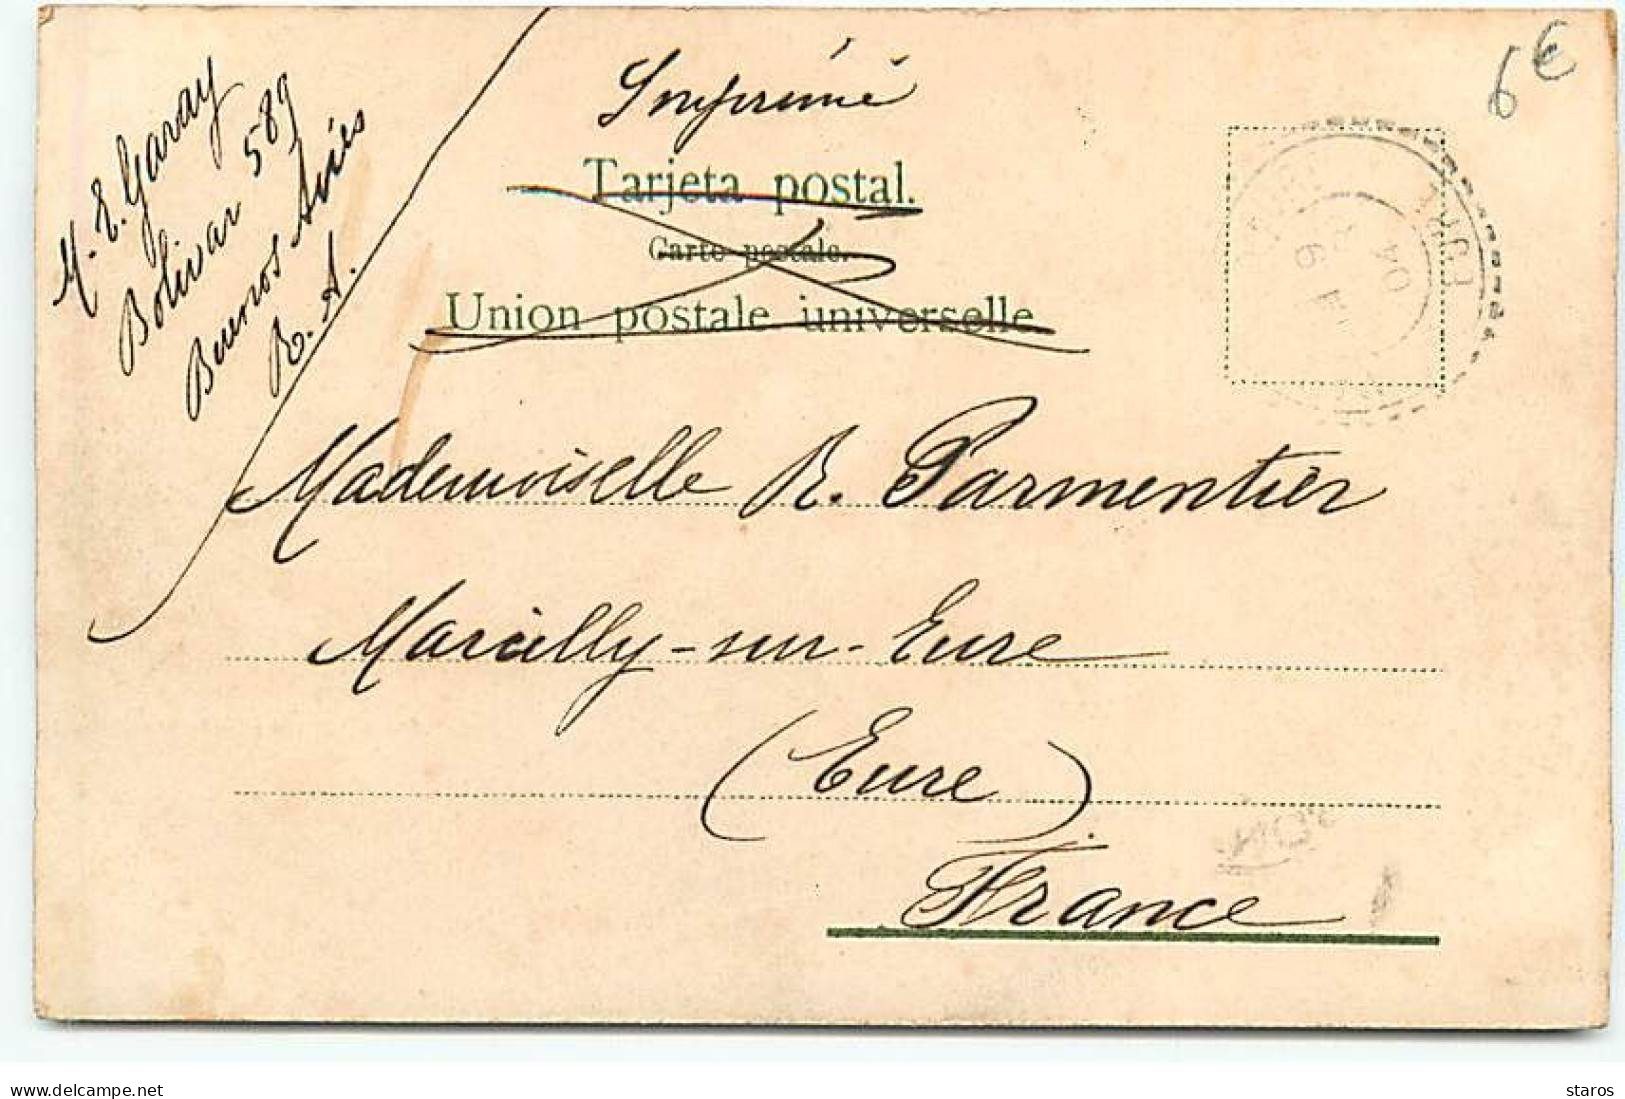 6€
M. E. Garay
Bolivar 589
Buenos Aires
R. A.
Imprimé
Tarjeta postal.
Carte postale.
Union postale universelle
EURE
04
Mademoiselle R. Parmentier
Marcilly-sur-Eure
(Eure)
France
delcampe.net
staros